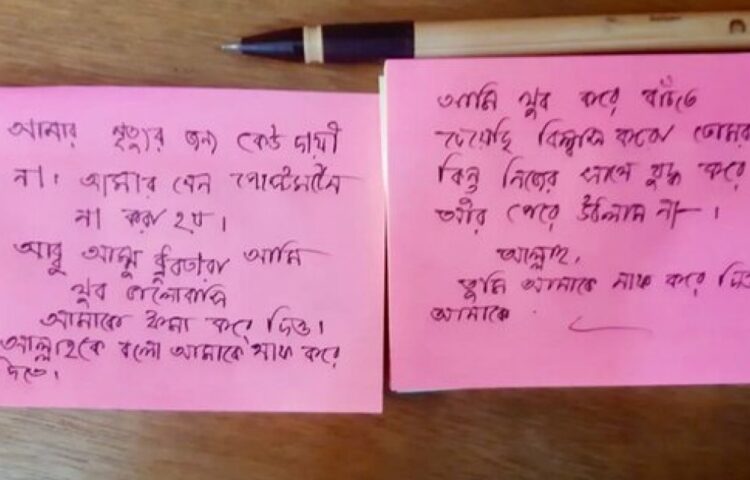 আমার মৃত্যুর জন্য কেউ দায়ী
না। আমার যেন পোস্টমর্টেম
না করা হয়।
আব্বু আম্মু ধ্রুবতারা আমি
খুব ভালোবাসি
আমাকে ক্ষমা করে দিও।
আল্লাহকে বলো আমাকে মাফ করে
দিতে।
আমি খুব করে বাঁচতে
চেয়েছি বিশ্বাস করো তোমরা
কিন্তু নিজের সাথে যুদ্ধ করে
আর পেরে উঠলাম না।
আল্লাহ,
তুমি আমাকে মাফ করে দিও
আমাকে